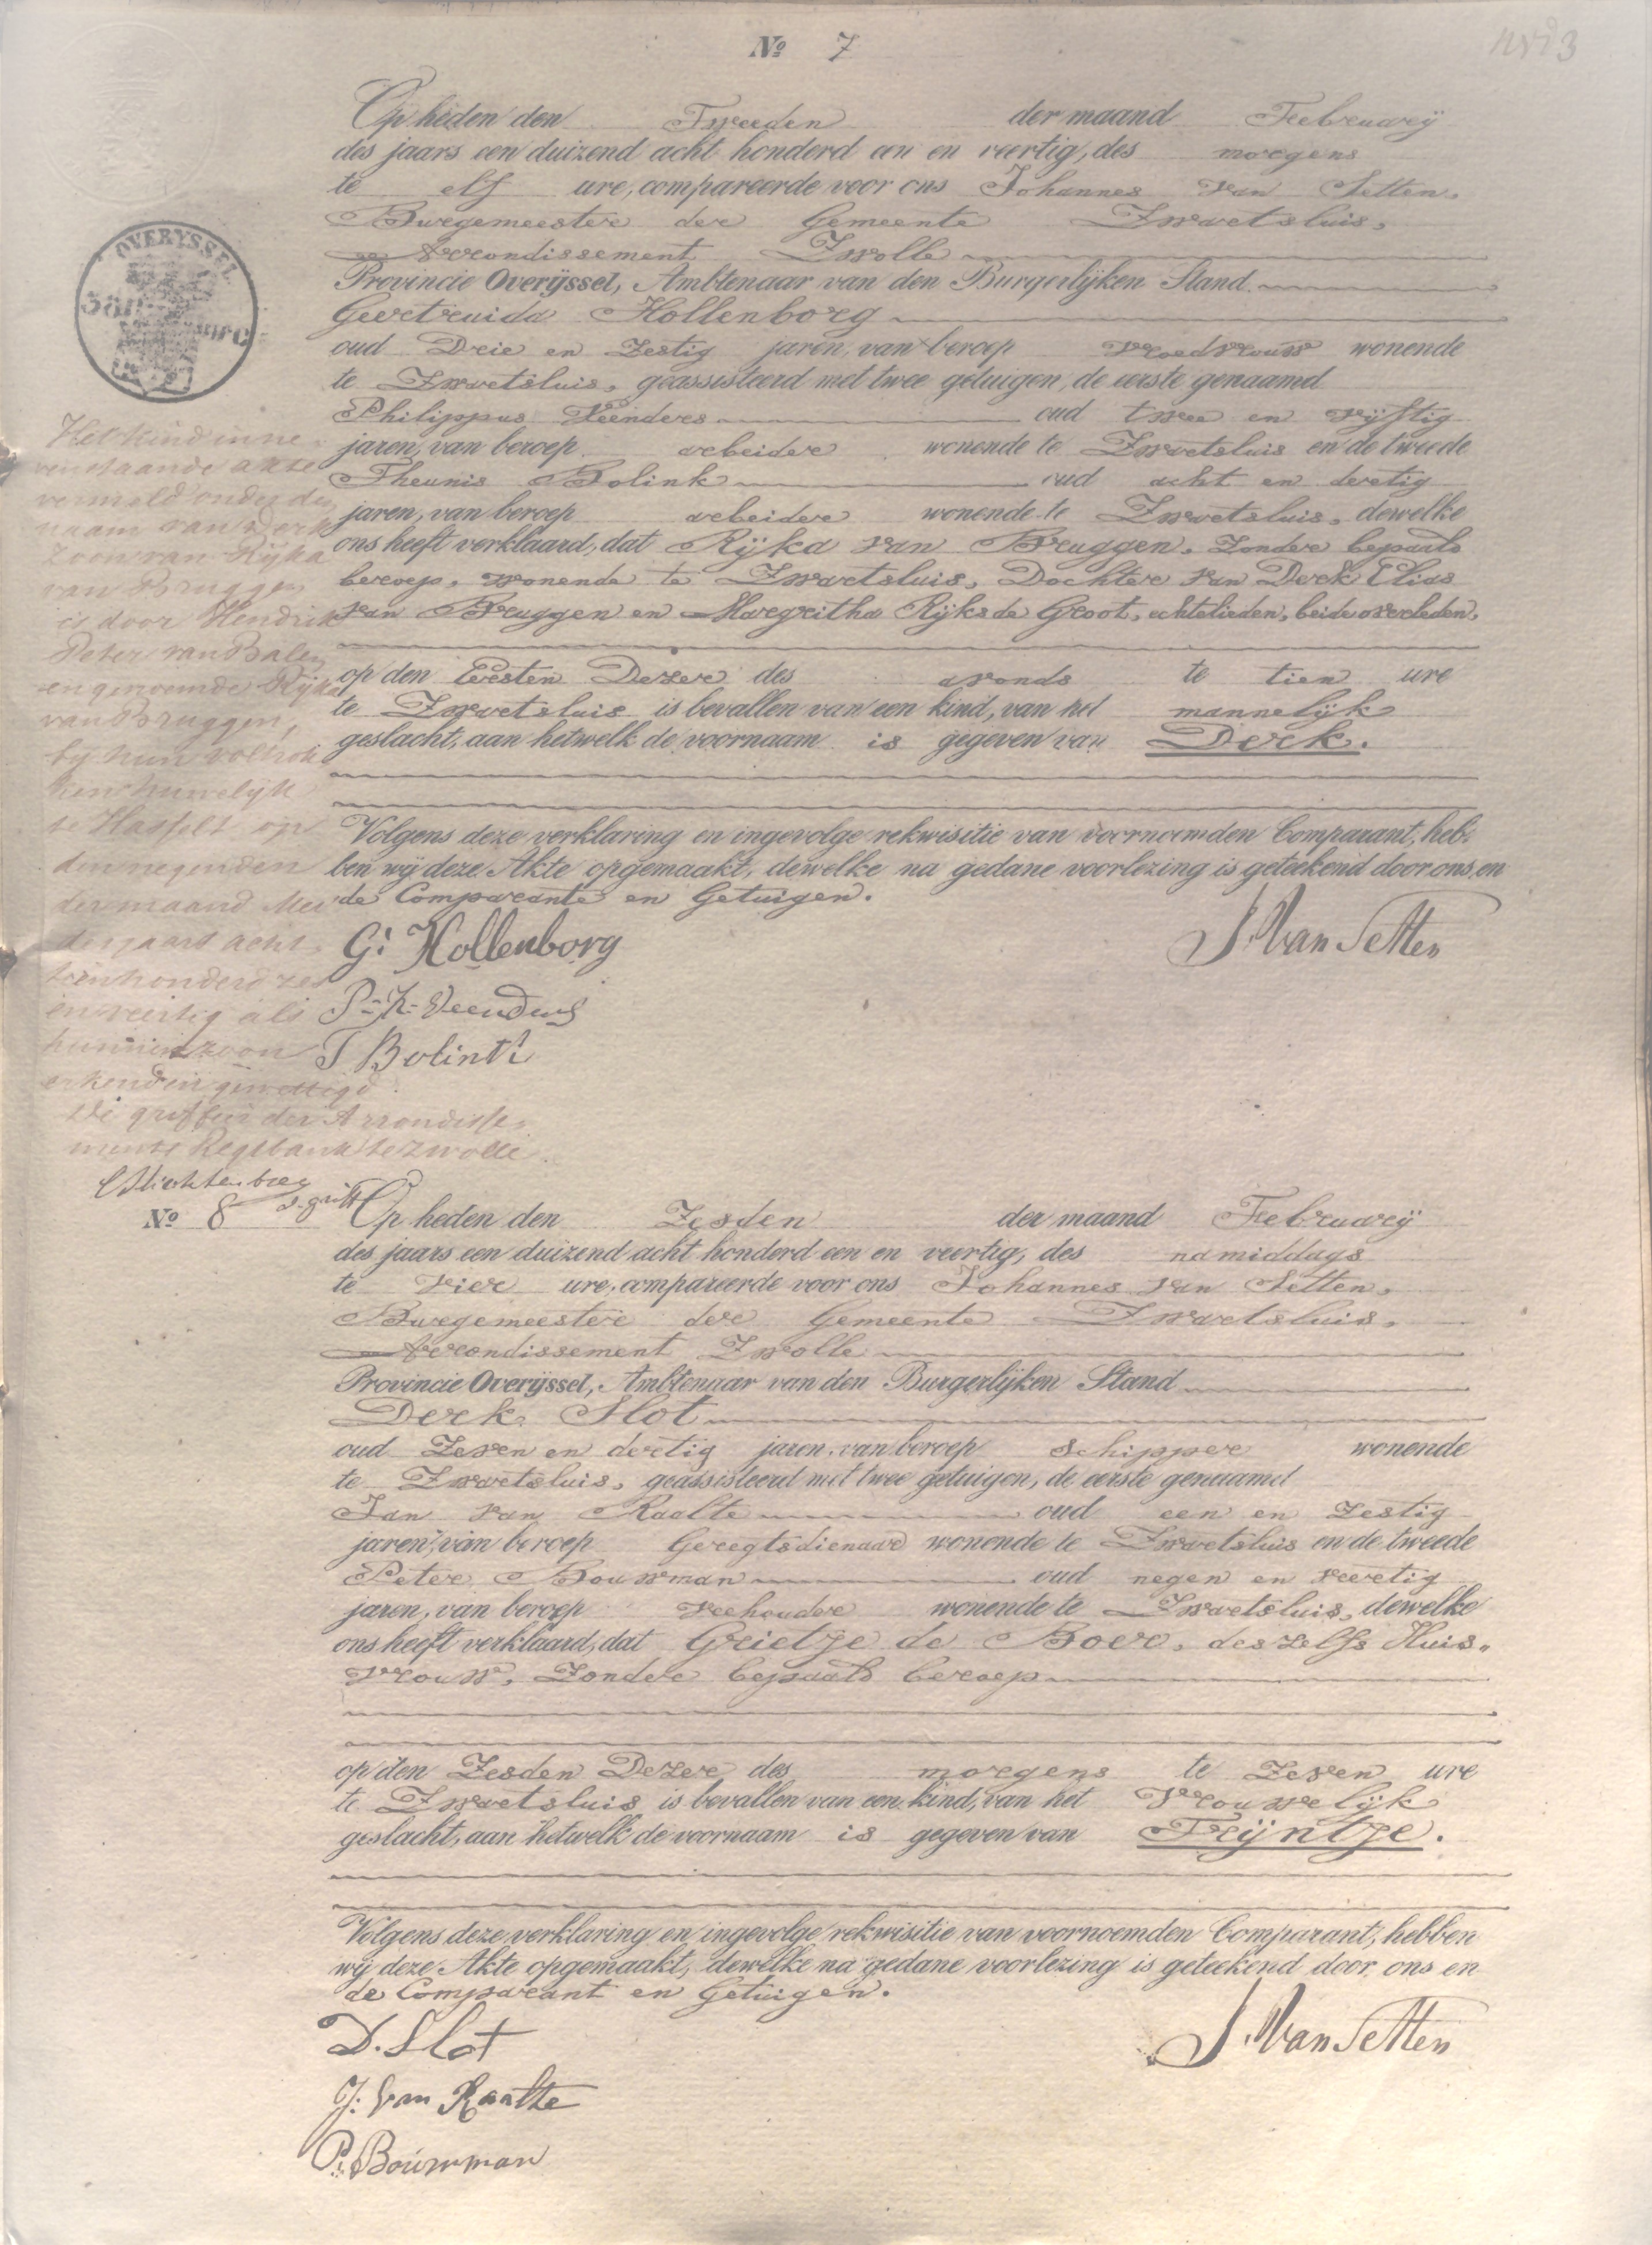 Nº 7
Op heden den Tweeden der maand February
des jaars een duizend acht honderd een en veertig, des morgens
te elf ure, compareerde voor ons Johannes van Setten,
Burgemeester der Gemeente Zwartsluis,
Arrondissement Zwolle
Provincie Overijssel, Ambtenaar van den Burgerlijken Stand
Geertruida Hollenborg
oud Drie en Zestig jaren, van beroep vroedvrouw wonende
te Zwartsluis, geassisteerd met twee getuigen, de eerste genaamd
Philippus Veenders oud twee en vyftig
jaren, van beroep arbeider wonende te Zwartsluis en de tweede
Theunis Bolink oud acht en dertig
jaren, van beroep arbeider wonende te Zwartsluis, dewelke
ons heeft verklaard, dat Rijka van Bruggen, Zonder bepaald
beroep, wonende te Zwartsluis, Dochter van Derk Elias
van Bruggen en Margritha Rijks de Groot, echtelieden, beide overleden,
op den Eersten Dezer des avonds te tien ure
te Zwartsluis is bevallen van een kind, van het mannelijk
geslacht, aan hetwelk de voornaam is gegeven van Derk.
Volgens deze verklaring en ingevolge rekwisitie van voornoemden Comparant, heb-
ben wij deze Akte opgemaakt, dewelke na gedane voorlezing is geteekend door ons en
de Comparante en Getuigen.
G: Hollenborg
J. Van Setten
P. H. Veenders
T Bolink
OVERYSSEL
Het kind inne-
venstaande akte
vermeld onder den
naam van Derk
zoon van Rijka
van Bruggen
is door Hendrik
Peter van Balen
en genoemde Rijka
van Bruggen,
by hun voltrok-
ken huwelijk
te Hasselt op
den negenden
der maand Mei
des jaars acht-
tienhonderd zes
en veertig als
hunnen zoon
erkend en gewettigd
De griffier der Arrondisse-
ments Regtbank te Zwolle
Nº 8
Op heden den Zesden der maand February
des jaars een duizend acht honderd een en veertig, des namiddags
te vier ure, compareerde voor ons Johannes van Setten,
Burgemeester der Gemeente Zwartsluis,
Arrondissement Zwolle
Provincie Overijssel, Ambtenaar van den Burgerlijken Stand
Derk Slot
oud Zeven en dertig jaren, van beroep Schipper wonende
te Zwartsluis, geassisteerd met twee getuigen, de eerste genaamd
Jan van Raalte oud een en Zestig
jaren, van beroep Geregtsdienaar wonende te Zwartsluis en de tweede
Peter Bouwman oud negen en veertig
jaren, van beroep veehouder wonende te Zwartsluis, dewelke
ons heeft verklaard, dat Grietje de Boer, deszelfs Huis-
vrouw, Zonder bepaald beroep
op den Zesden Dezer des morgens te Zeven ure
te Zwartsluis is bevallen van een kind, van het Vrouwelijk
geslacht, aan hetwelk de voornaam is gegeven van Trijntje.
Volgens deze verklaring en ingevolge rekwisitie van voornoemden Comparant, hebben
wij deze Akte opgemaakt, dewelke na gedane voorlezing is geteekend door ons en
de Comparant en Getuigen.
D. Slot
J. Van Setten
J: van Raalte
P: Bouwman